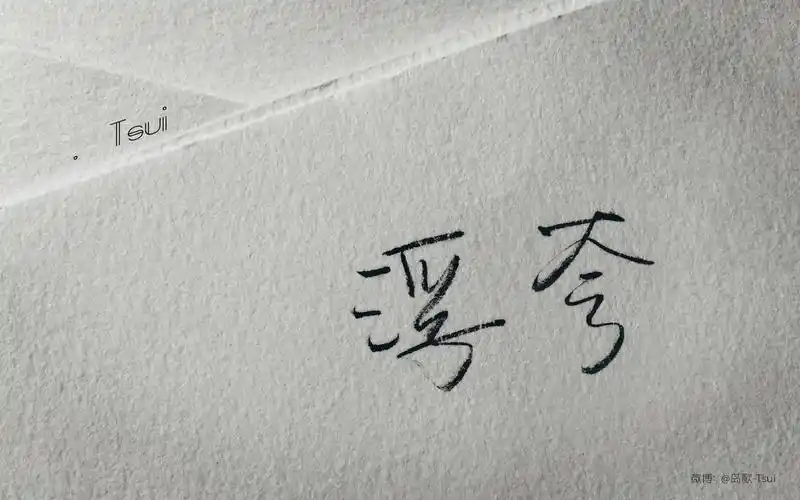 Tsui
浮夸
微博：@岛歌-Tsui